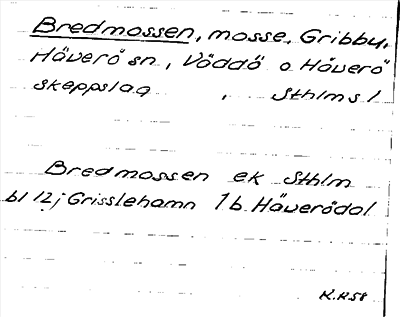 Bredmossen, mosse, Gribby,
Häverö sn, Väddö o Häverö
skeppslag , Sthlms l
Bredmossen ek Sthlm
bl 12 j Grisslehamn 1b Häverödal
K.H.58